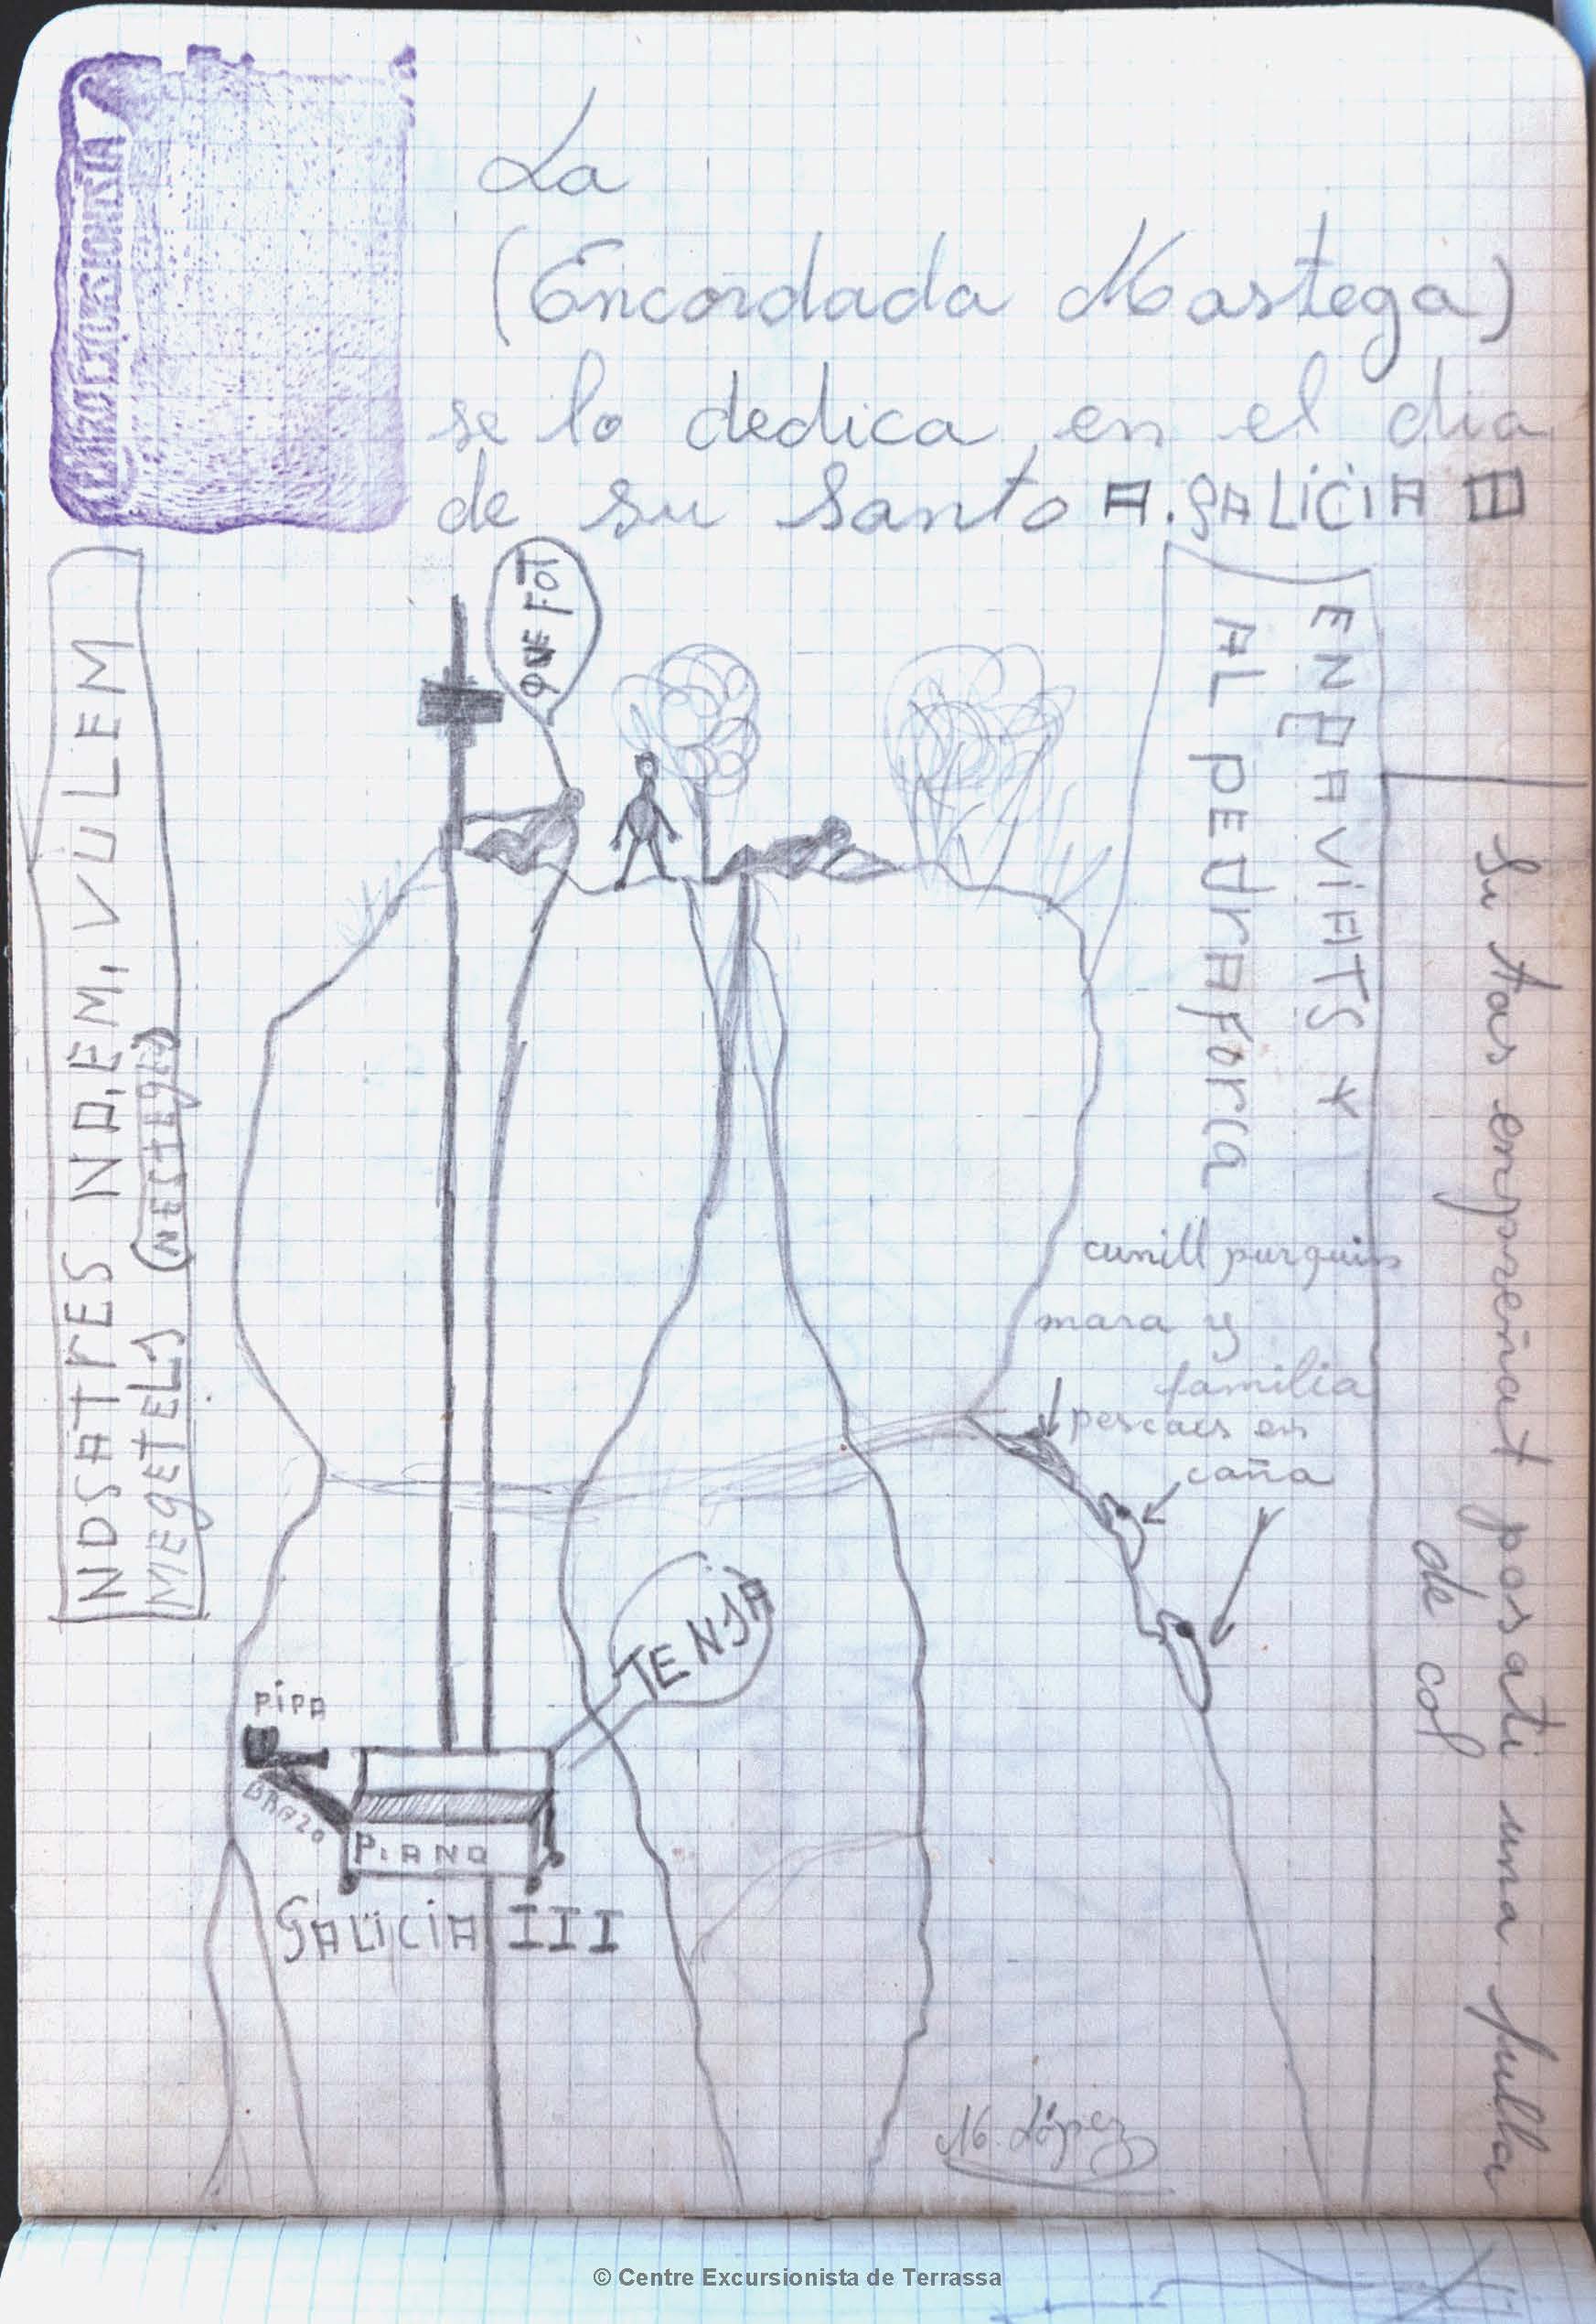 La
(Encordada Mastega)
se lo dedica en el dia
de su Santo A. GALICIA
QUE FOT
ENPAVIATS Y
AL PEDRAFORCA
NOSATRES NO,EM, VULEM
MEGETELS
Si tas enpreñat posati una fulla
de col
cunill purquins
mara y
familia
pescaes en
caña
TENSA
PIPA
BRAZO
PIANO
GALICIA III
M. López
© Centre Excursionista de Terrassa